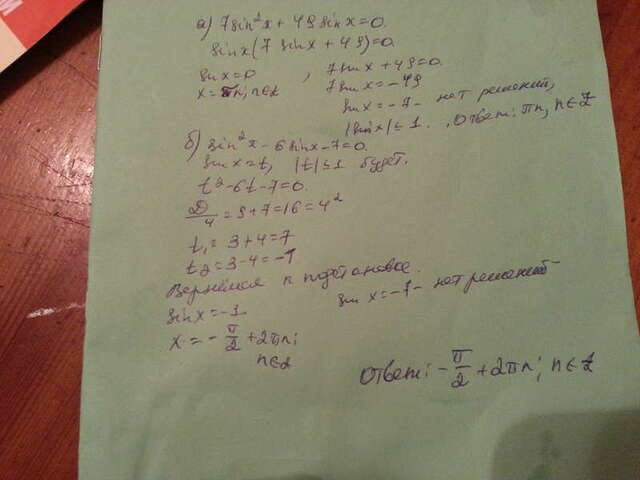 а) 7sin²x + 49 sinx = 0.
sinx(7 sinx + 49) = 0.
sinx = 0 , 7sinx + 49 = 0.
x = πn; n∈Z 7sinx = -49
sinx = -7 - нет решений,
|sinx| ≤ 1. Ответ: πn, n∈Z
б) sin²x - 6sinx - 7 = 0.
sinx = t, |t| ≤ 1 будет.
t² - 6t - 7 = 0.
D/4 = 9 + 7 = 16 = 4²
t₁ = 3 + 4 = 7
t₂ = 3 - 4 = -1
Вернёмся к подстановке.
sinx = -1. sin x = -7 - нет решений
x = - π/2 + 2πn;
n∈Z
Ответ: - π/2 + 2πn; n∈Z